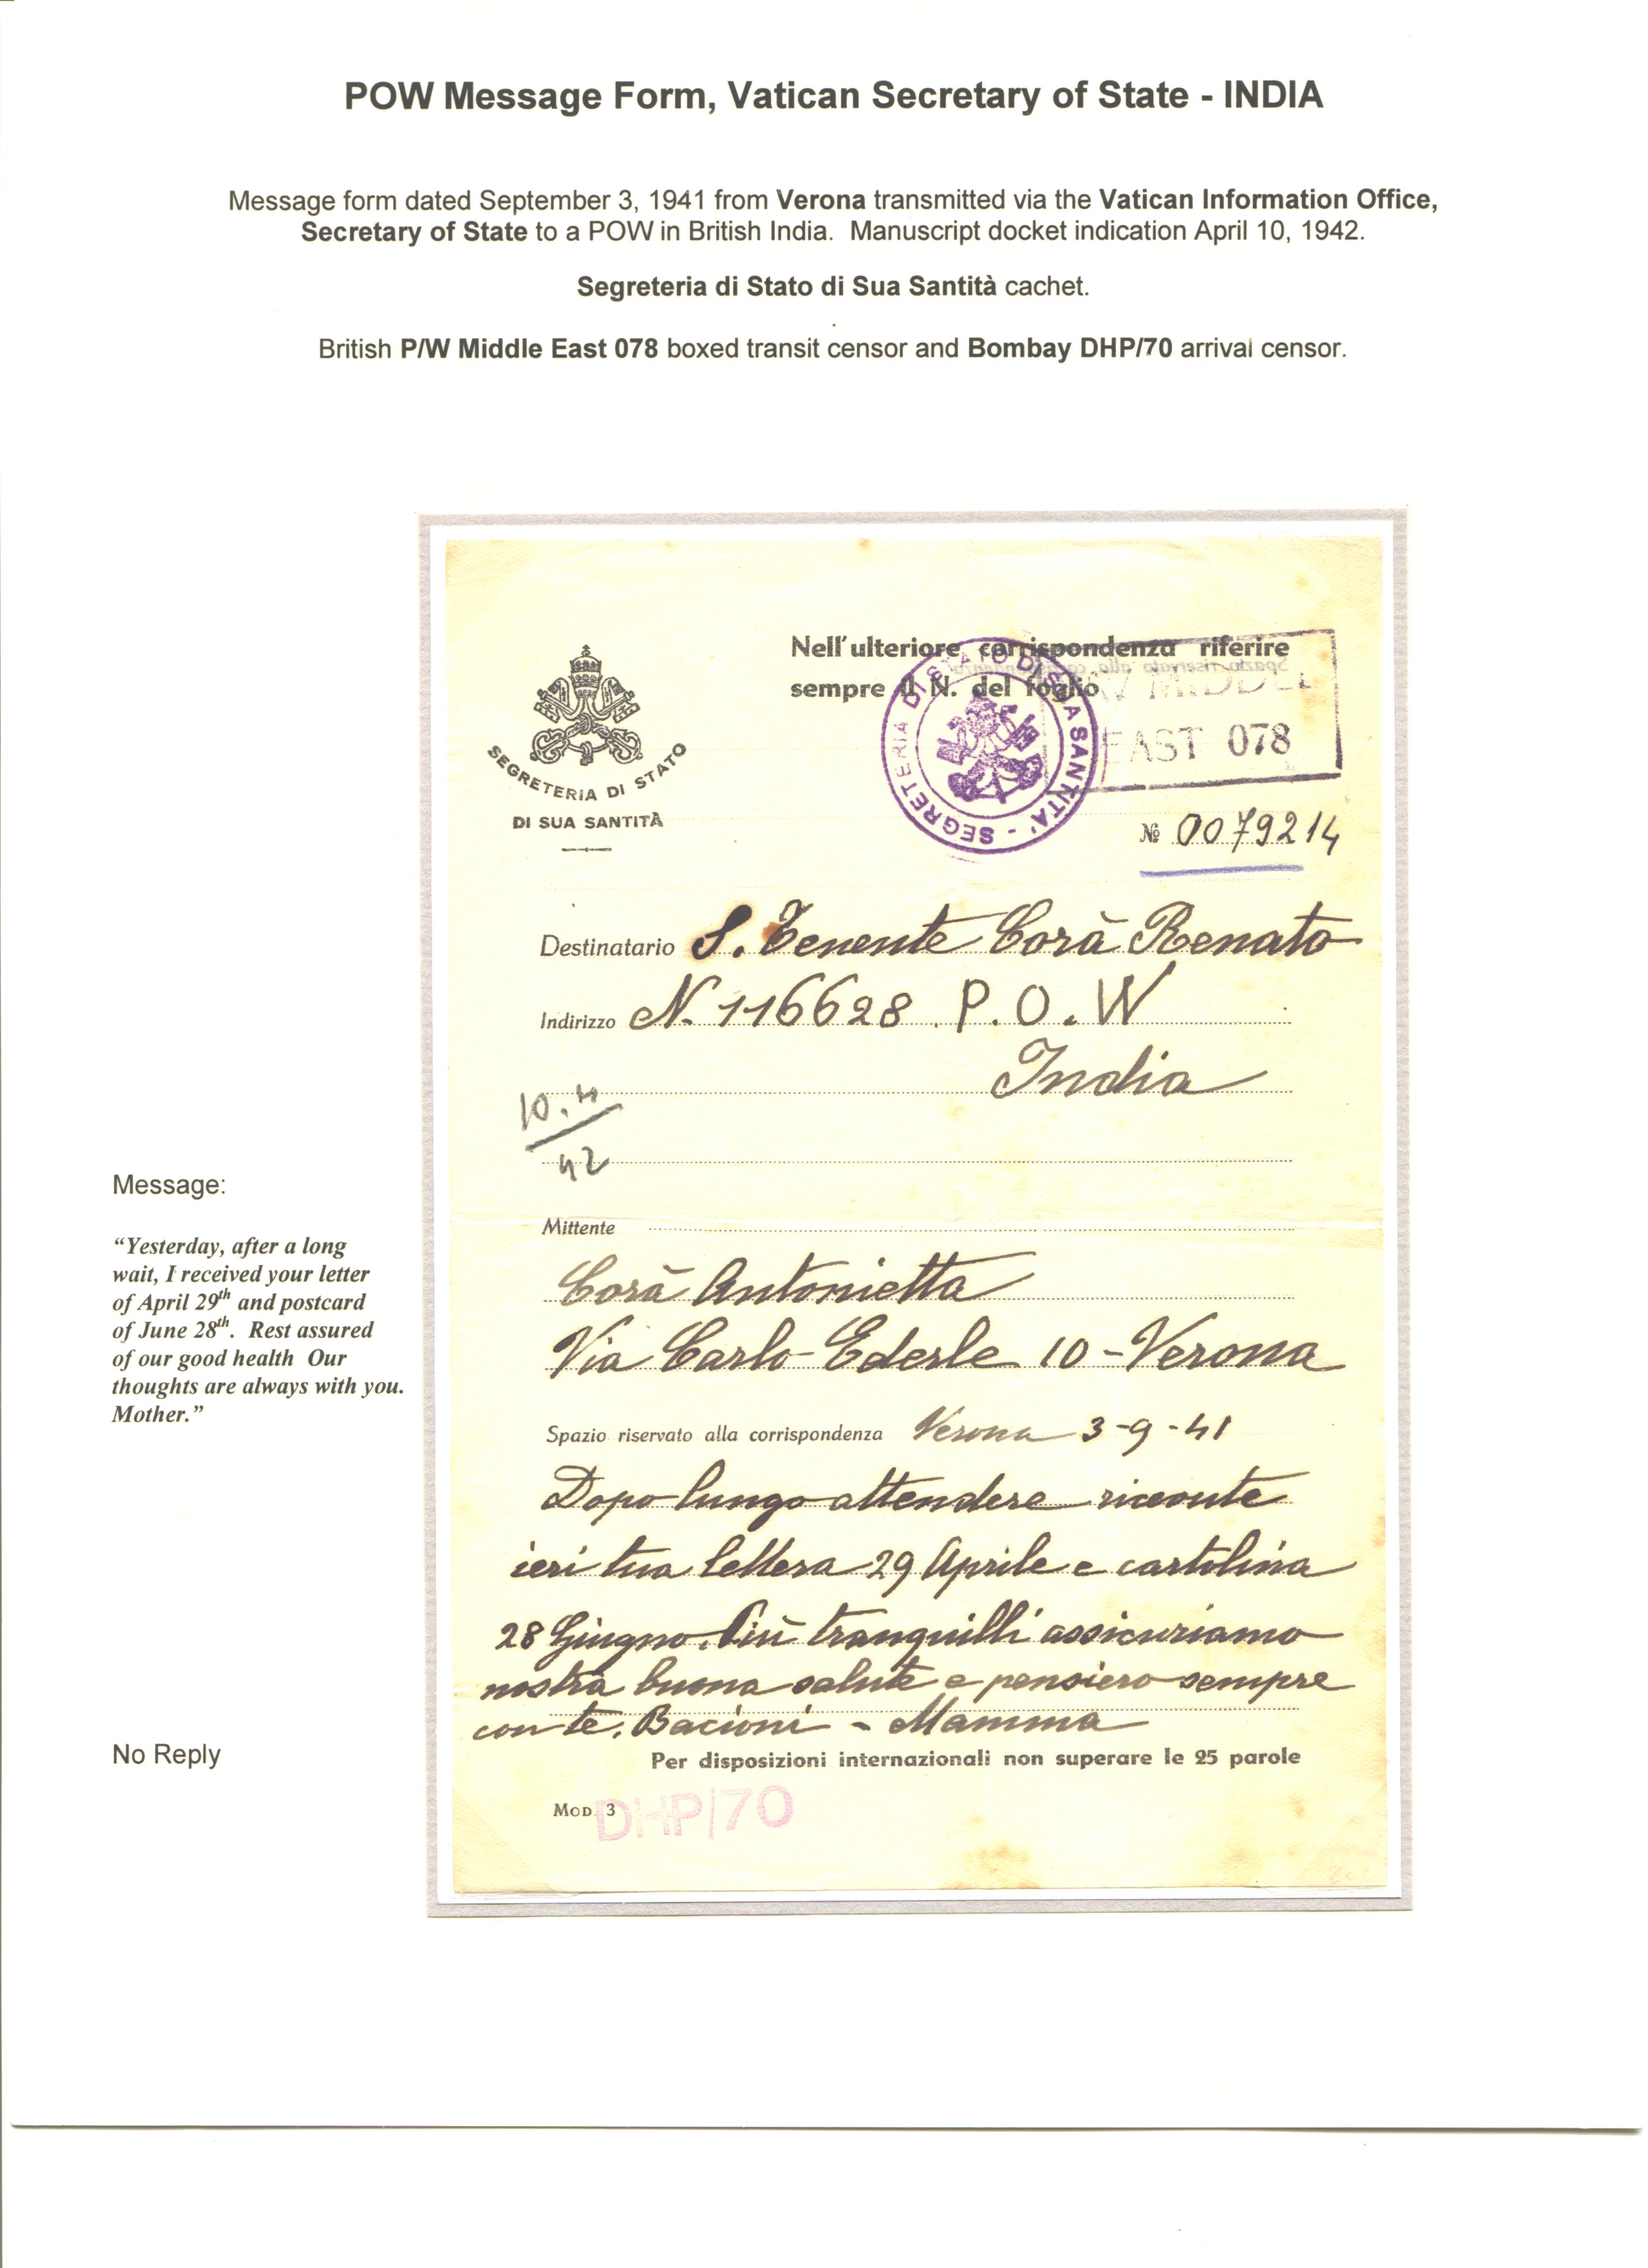 POW Message Form, Vatican Secretary of State - INDIA
Message form dated September 3, 1941 from Verona transmitted via the Vatican Information Office,
Secretary of State to a POW in British India. Manuscript docket indication April 10, 1942.
Segreteria di Stato di Sua Santità cachet.
British P/W Middle East 078 boxed transit censor and Bombay DHP/70 arrival censor.
Nell'ulteriore corrispondenza riferire
sempre il N. del foglio
Spazio riservato alla corrispondenza
MIDDLE
EAST 078
SEGRETERIA DI STATO DI SUA SANTITA' -
SEGRETERIA DI STATO
DI SUA SANTITÀ
№ 0079214
Destinatario S. Tenente Corà Renato
Indirizzo N. 116628. P.O.W
India
10.4
42
Mittente
Corà Antonietta
Via Carlo Ederle 10 - Verona
Spazio riservato alla corrispondenza Verona 3-9-41
Dopo lungo attendere ricevute
ieri tua lettera 29 Aprile e cartolina
28 Giugno. Più tranquilli assicuriamo
nostra buona salute e pensiero sempre
con te. Bacioni - Mamma
Per disposizioni internazionali non superare le 25 parole
MOD. 3
DHP/70
Message:
"Yesterday, after a long
wait, I received your letter
of April 29th and postcard
of June 28th. Rest assured
of our good health Our
thoughts are always with you.
Mother."
No Reply